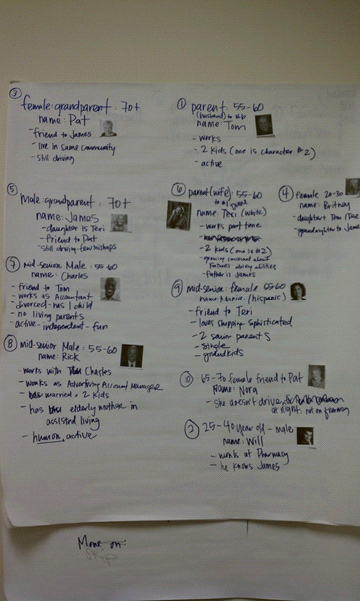 ③ female: grandparent: 70+
name: Pat
- friend to James
- live in same community
- still driving
① parent: 55-60
(husband) to #6
name: Tom
- works
- 2 kids (one is character #2)
- active
⑤ male: grandparent: 70+
name: James
- daughter is Teri
- friend to Pat
- still driving - few mishaps
⑥ parent (wife): 55-60
to #1
name: Teri (white)
- works part time
- 2 kids (one is #2)
- growing concerned about
Father's driving abilities
- Father is James
④ female 20-30
name: Britney
- daughter to Tom/Teri
- granddaughter to James
⑦ mid-senior Male: 55-60
name: Charles
- friend to Tom
- works as Accountant
- divorced - has 1 child
- no living parents
- active - independent - fun
⑨ mid-senior female 55-60
name: Maria (hispanic)
- friend to Teri
- loves shopping, sophisticated
- 2 senior parents
- single
- grandkids
⑧ mid-senior Male: 55-60
name: Rick
- works with Charles
- works as Advertising Account Manager
- married, 2 kids
- has elderly mother in
assisted living
- humor, active
⑩ 65-70 female friend to Pat
name: Nora
- she doesn't drive
at night, not on freeway
② 25-40 year old - male
name: Will
- works at Pharmacy
- he knows James
More on: